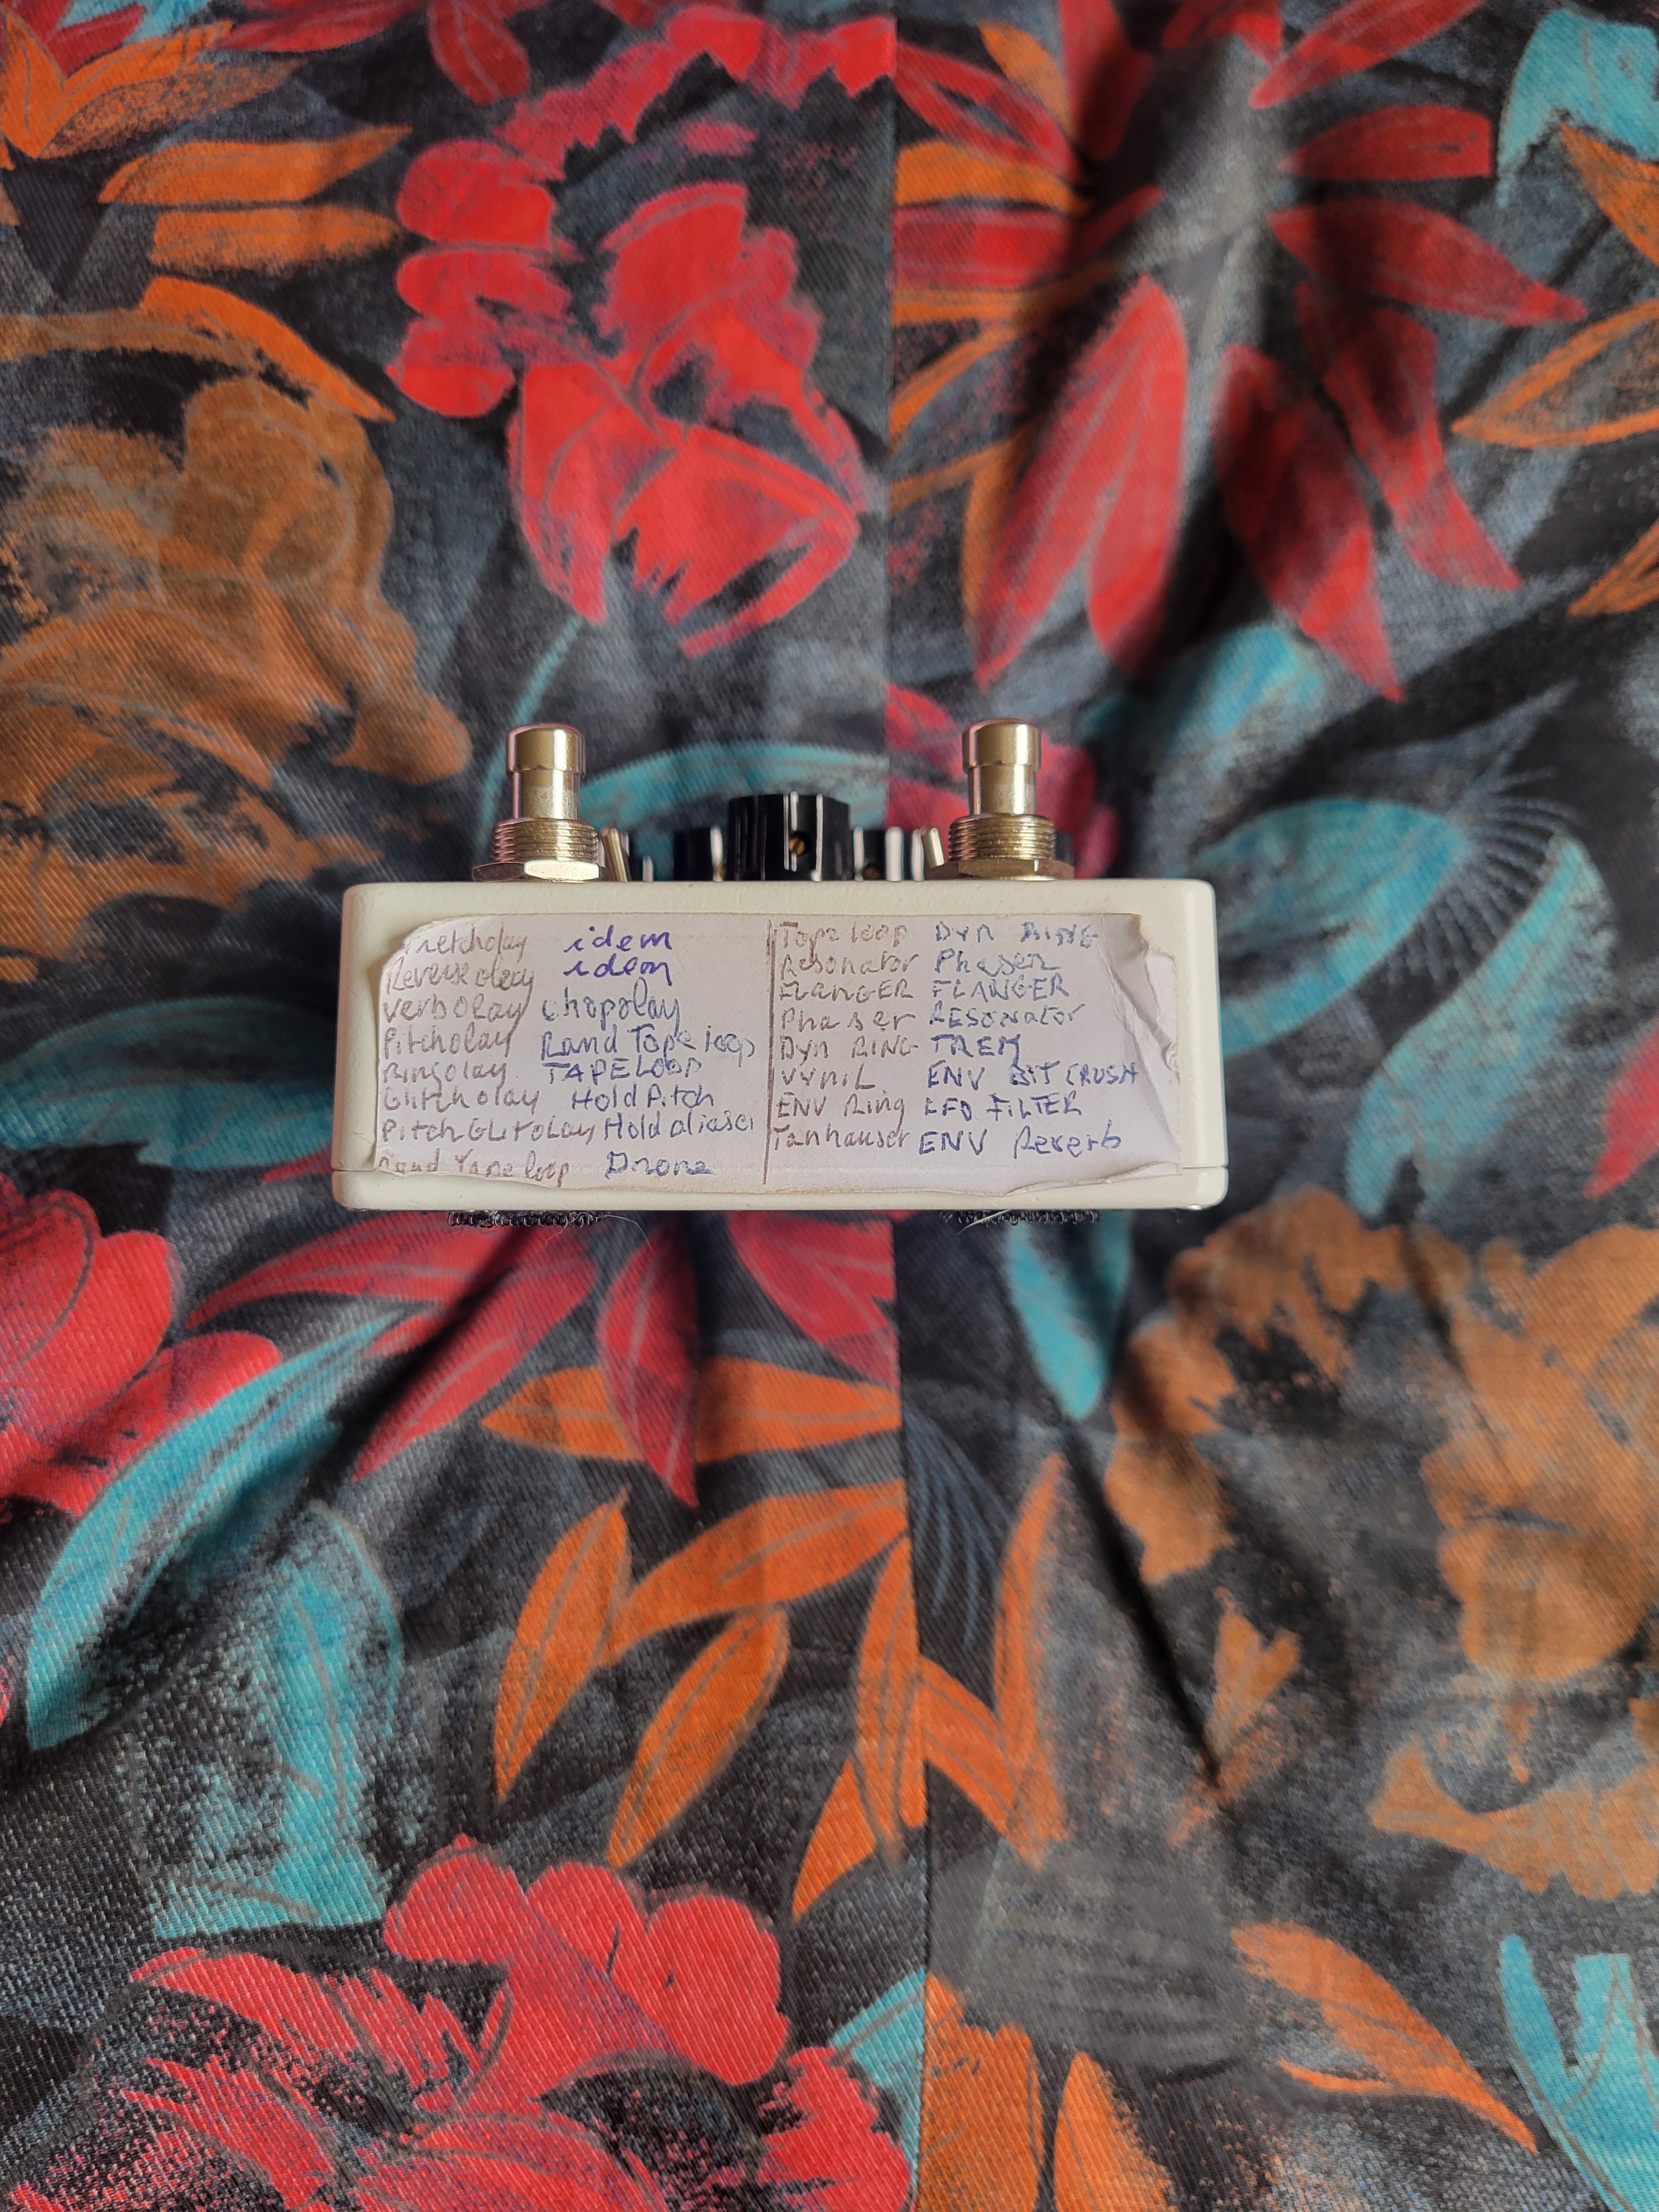 idem
Reverse olay idem
Verb olay chopolay
Pitcholay Rand Tape loop
Ringolay TAPE LOOP
Glitch olay Hold Pitch
Pitch GLitolay Hold aliaser
Rand Tape loop Drone
Tape loop DYN RING
Resonator Phaser
FLANGER FLANGER
Phaser RESONator
DYN RING TREM
VYNIL ENV BIT CRUSH
ENV Ring LFO FILTER
Tanhauser ENV Reverb